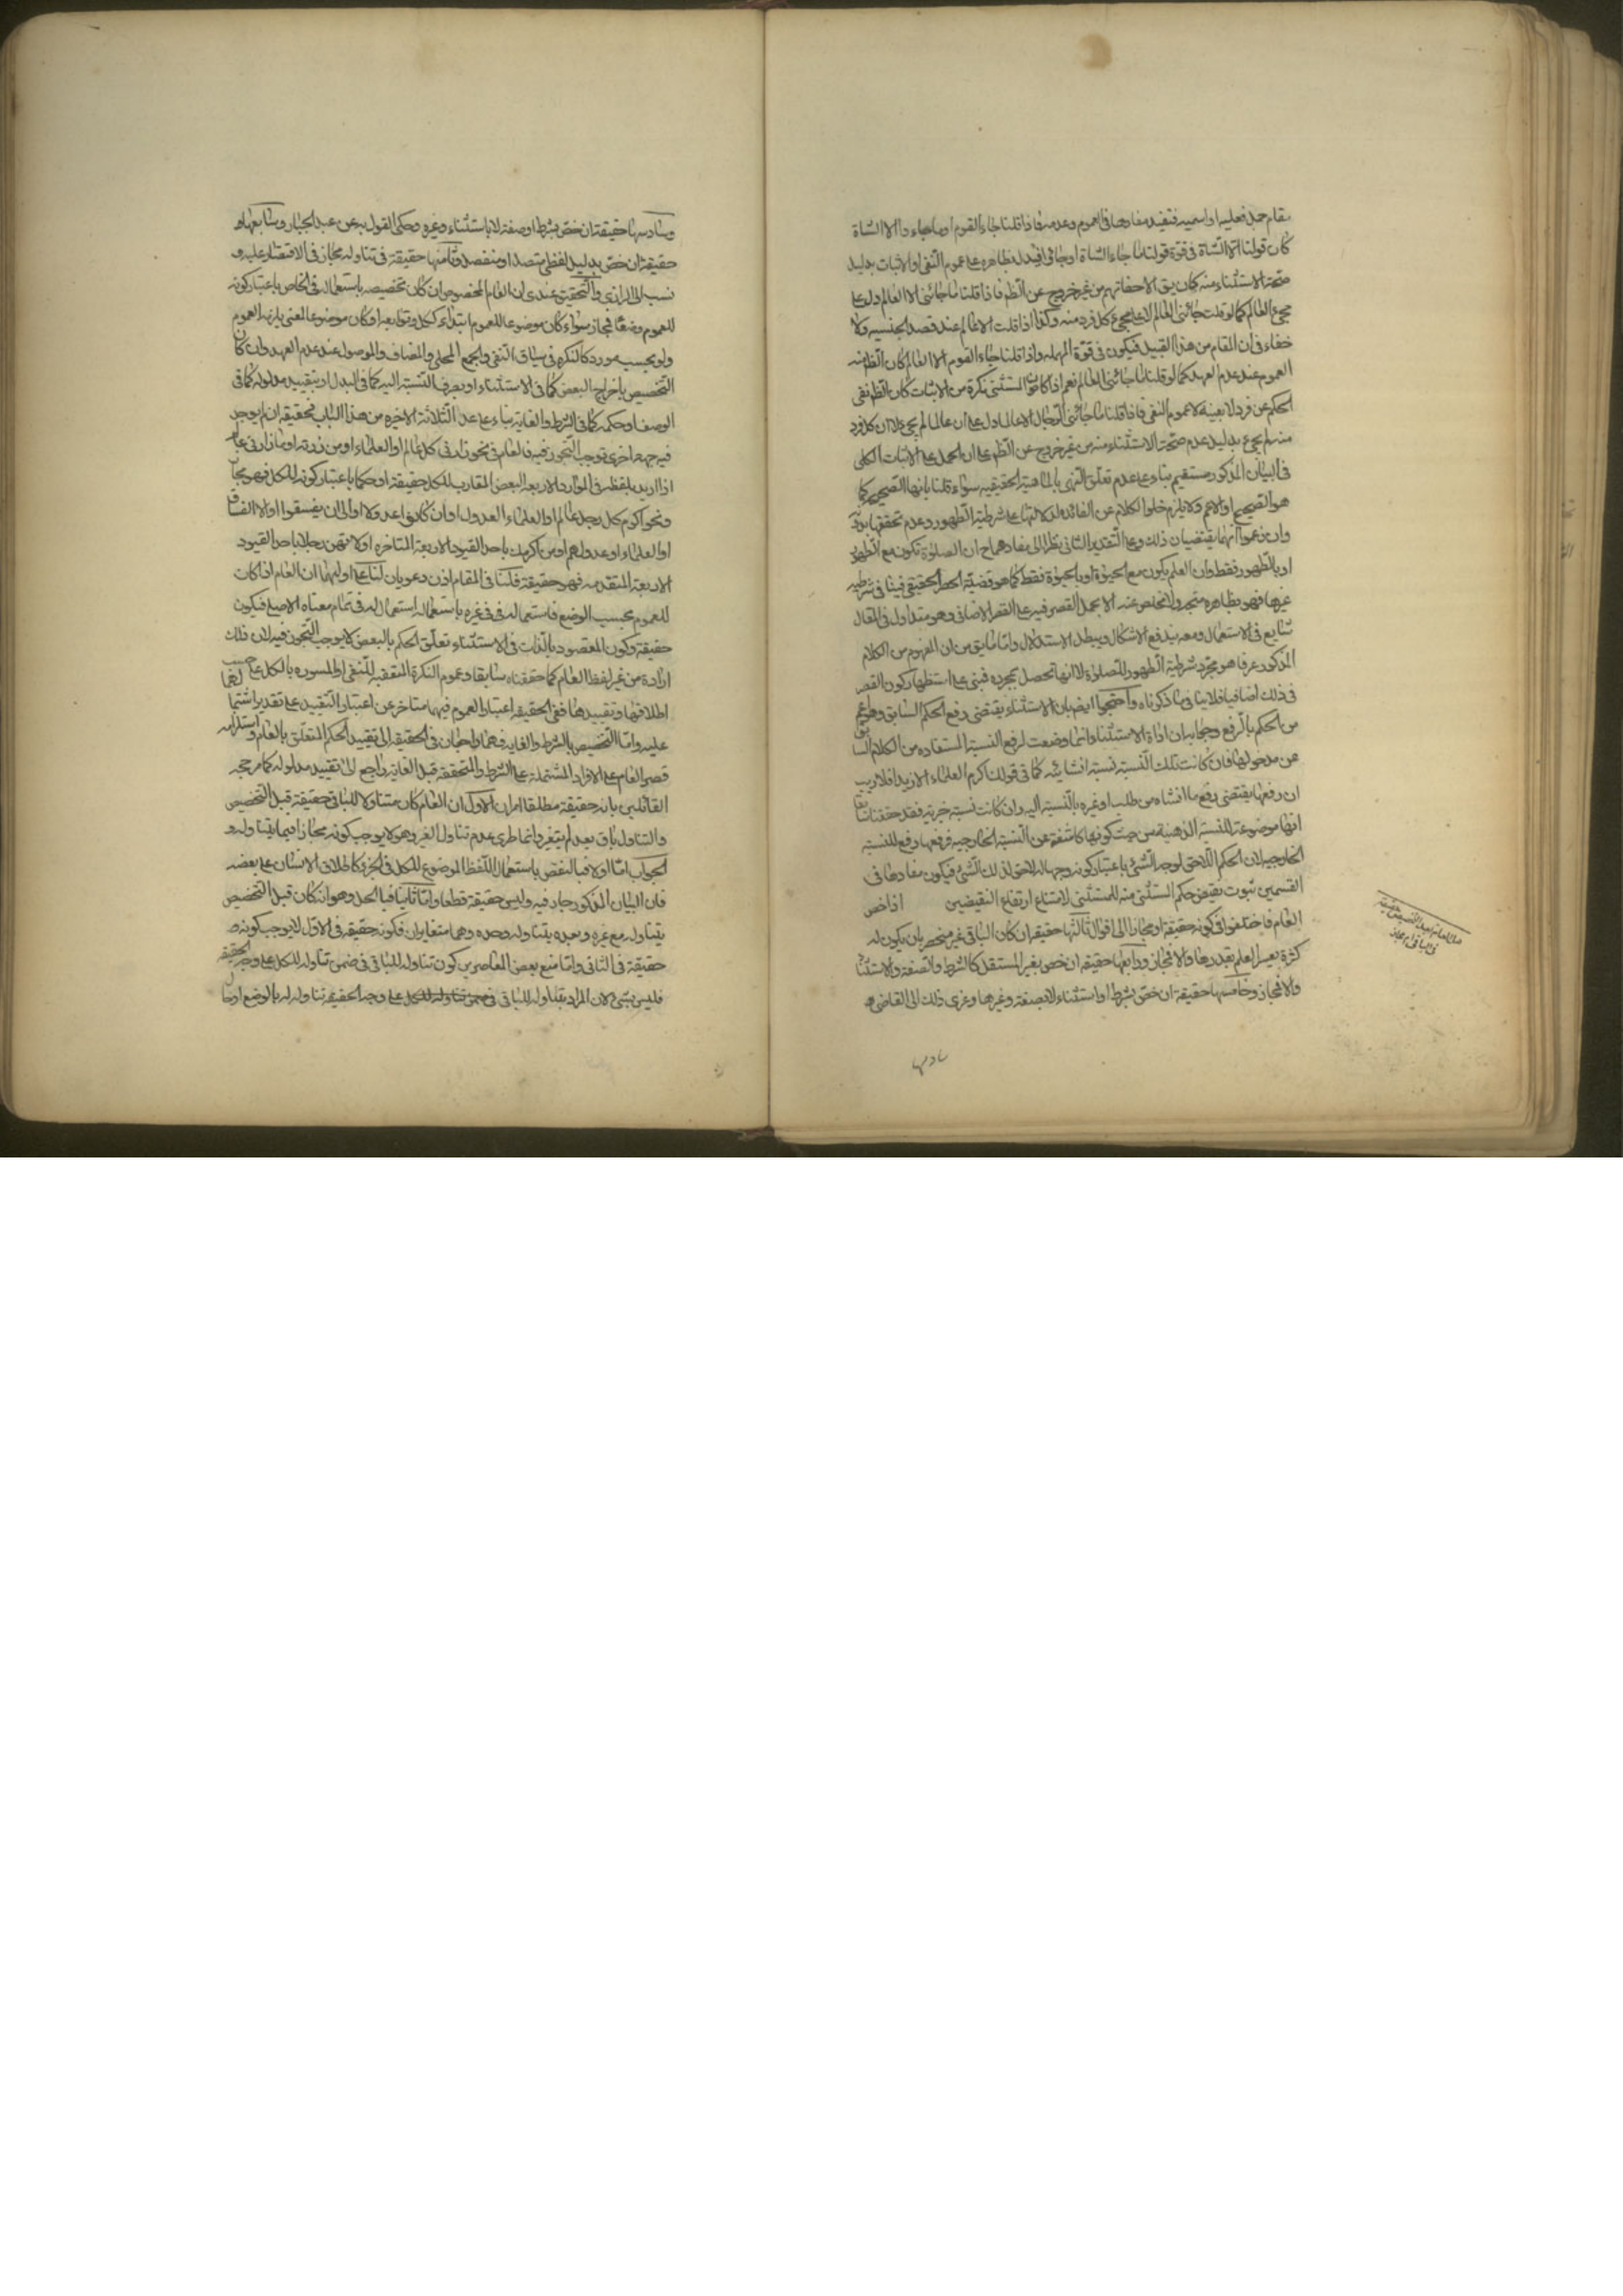 مقام جملة فعلية او اسمية فتفيد مفادها فى العموم وعدمه فاذا قلنا جاء القوم او ما جاء والا الشاة
كان قولنا الا الشاة فى قوة قولنا ما جاء الشاة او جائى افيدل بظاهره على عموم النفى او الاثبات بدليل
صحة الاستثناء منه كان يق الا حفاتهم من غير خروج عن الظم فاذا قلنا ما جائنى الا العالم دل على
مجئ العالم كما لو قلت جائنى العالم لا على مجئ كل فرد منه وكذا اذا قلت الا عالم عند قصد الجنسيه ولا
خفاء فى ان المقام من هذا القبيل فيكون فى قوة المهمله واذا قلنا جاء القوم الا العالم كان الظم منه
العموم عند عدم العهد كما لو قلنا ما جائنى العالم نعم اذا كان المستثنى نكرة من الاثبات كان الظم نفى
الحكم عن فرد لا بعينه لا عموم النفى فاذا قلنا ما جائنى الرجال الا عالما دل على ان عالما لم يجئ لا ان كل فرد
منه لم يجئ بدليل عدم صحة الاستثناء منه من غير خروج عن الظم على ان الحمل على الاثبات الكلى
فى البيان المذكور مستقيم بناء على عدم تعلق النهى بالماهية الحقيقيه سواء قلنا بانها الصحيحه كما
هو الصحيح او الاعم ولا يلزم خلوا الكلام عن الفائده لدلالتها على شرطية الطهور وعدم تحققها بدونه
وان زعموا انهما يقتضيان ذلك وعلى التقدير الثانى نظرا الى مفادهما ح ان الصلوة تكون مع الطهور
او بالطهور فقط وان العلم يكون مع الحيوة او بالحيوة فقط كما هو قضية الحصر الحقيقى فينافى شرطية
غيرها فهو بظاهره متجه ولا تخلص عنه الا بحمل القصر فيه على القصر الاضافى وهو متداول فى المقال
شايع فى الاستعمال ومعه يندفع الاشكال ويبطل الاستدلال واما ما يق من ان المفهوم من الكلام
المذكور عرفا هو مجرد شرطية الطهور للصلوة لا انها تحصل بمجرده فمبنى على استظهار كون القصر
فى ذلك اضافيا فلا ينافى ما ذكرناه واحتجوا ايضم بان الاستثناء يقتضى رفع الحكم السابق وهو اعم
من الحكم بالرفع وجوابه ان اداة الاستثناء وانما وضعت لرفع النسبة المستفاده من الكلام السابق
عن مدخولها فان كانت تلك النسبة نسبة انشائيه كما فى قولك اكرم العلماء الا زيدا فلا ريب
ان رفعها يقتضى رفع ما انشاه من طلب او غيره بالنسبة اليه وان كانت نسبة خبرية فقد حققنا سابقا
انها موضوعة للنسبة الذهنية من حيث كونها كاشفة عن النسبة الخارجيه فرفعها رفع للنسبة
الخارجيه لان الحكم اللاحق لوجه الشئ باعتبار كونه وجها له لاحق لذلك الشئ فيكون مفادها فى
القسمين ثبوت نقيض حكم المستثنى منه للمستثنى لامتناع ارتفاع النقيضين اذا خص
العام فاختلفوا فى كونه حقيقة او مجازا الى اقوال ثالثها حقيقة ان كان الباقى غير منحصر بان يكون له
كثرة يعسر العلم بقدرها والا فمجاز ورابعها حقيقة ان خص بغير المستقل كالشرط والصفة والاستثناء
والا فمجاز وخامسها حقيقة ان خص بشرط او استثناء لا بصفة وغيرها وعزى ذلك الى القاضى
سادسها
هل العام بعد التخصيص حقيقة
فى الباقى ام مجاز
وسادسها حقيقة ان خص بشرط او صفة لا باستثناء وغيره وحكى القول به عن عبد الجبار وسابعها
حقيقة ان خص بدليل لفظى متصل او منفصل وثامنها حقيقة فى تناوله مجاز فى الاقتصار عليه و
نسب الى الرازى والتحقيق عندى ان العام المخصوص ان كان تخصيصه باستعماله فى الخاص باعتبار كونه
للعموم وضعا فمجاز سواء كان موضوعا للعموم ابتداء ككل وتوابعه او كان موضوعا لمعنى يلزمه العموم
ولو بحسب مورد كالنكره فى سياق النفى والجمع المحلى والمضاف والموصول عند عدم العهد وان كان
التخصيص باخراج البعض كما فى الاستثناء او بصرف النسبة اليه كما فى البدل او بتقييد مدلوله كما فى
الوصف او حكمه كما فى الشرط والغاية بناء على عد الثلاثة الاخيره من هذا الباب فحقيقة ان لم يوجد
فيه جهة اخرى توجب التجوز فيه فالعام فى نحو زارنى كل عالم او العلماء او من زرته او ما زارنى عالم
اذا اريد بلفظه فى الموارد الاربعة البعض المقارب للكل حقيقة او حكما باعتبار كونه للكل فهو مجاز
ونحو اكرم كل رجل عالم او العلماء العدول او ان كانوا عدولا او الى ان يفسقوا او الا الفساق
او العلماء او عدولهم او من اكرمك باحد القيود الاربعة المتاخره او لا تهن رجلا باحد القيود
الاربعة المتقدمه فهو حقيقة فلنا فى المقام اذن دعويان لنا على اوليهما ان العام اذا كان
للعموم بحسب الوضع فاستعماله فى غيره باستعماله استعمال له فى تمام معناه الاصلى فيكون
حقيقة وكون المقصود بالذات فى الاستثناء تعلق الحكم بالبعض لا يوجب التجوز فيه لان ذلك
ارادة من غير لفظ العام كما حققناه سابقا وعموم النكرة المتعقبه للنفى او المسوره بالكل على حسب
اطلاقها وتقييدها ففى الحقيقه اعتبار العموم فيها متاخر عن اعتبار التقييد على تقدير اشتمالها
عليه واما التخصيص بالشرط والغايه فهما راجعان فى الحقيقه الى تقييد الحكم المتعلق بالعام واستلزامه
قصر العام على الافراد المشتملة على الشرط والمتحققة قبل الغاية راجع الى تقييد مدلوله كما مر حجة
القائلين بانه حقيقة مطلقا امران الاول ان العام كان متناولا للباقى حقيقة قبل التخصيص
والتناول باق بعد لم يتغير وانما طرئ عدم تناول الغير وهو لا يوجب كونه مجازا فيما يتناوله و
الجواب اما اولا فبالنقض باستعمال اللفظ الموضوع للكل فى الجزء كاطلاق الانسان على بعضه
فان البيان المذكور جار فيه وليس حقيقة قطعا واما ثانيا فبالحل وهو انه كان قبل التخصيص
يتناوله مع غيره وبعده يتناوله وحده وهما متغايران فكونه حقيقة فى الاول لا يوجب كونه
حقيقة فى الثانى واما منع بعض المعاصرين كون تناوله للباقى فى ضمن تناوله للكل على وجه الحقيقه
فليس بشئ لان المراد بتناوله للباقى فى ضمن تناوله للكل على وجه الحقيقه تناوله له بالوضع